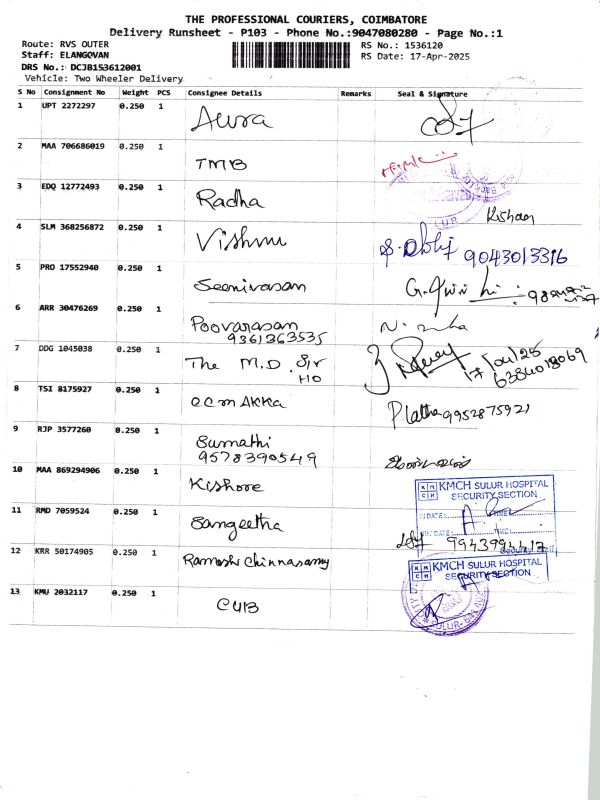 THE PROFESSIONAL COURIERS, COIMBATORE
Delivery Runsheet - P103 - Phone No.:9047080280 - Page No.:1
Route: RVS OUTER
Staff: ELANGOVAN
DRS No.: DCJB153612001
Vehicle: Two Wheeler Delivery
RS No.: 1536120
RS Date: 17-Apr-2025
S No Consignment No Weight PCS Consignee Details Remarks Seal & Signature
1 UPT 2272297 0.250 1
2 MAA 706686019 0.250 1 TMB
3 EDQ 12772493 0.250 1 Radha
SULUR
Kishan
4 SLM 368256872 0.250 1 Vishnu
9043013316
5 PRO 17552940 0.250 1 Seenivasan
6 ARR 30476269 0.250 1 Poovarasan
9361363535
7 DDG 1045038 0.250 1 The M.D. Sir
HO
17/04/25
6384018069
8 TSI 8175927 0.250 1 Akka P. Latha 9952875921
9 RJP 3577260 0.250 1 Sumathi
9578390549
10 MAA 869294906 0.250 1 Kishore
KMCH SULUR HOSPITAL
SECURITY SECTION
11 RMD 7059524 0.250 1 Sangeetha
DATE: TIME:
12 KRR 50174905 0.250 1 Ramesh Chinnasamy
KMCH SULUR HOSPITAL
SECURITY SECTION
13 KMU 2032117 0.250 1 CUB
SULUR